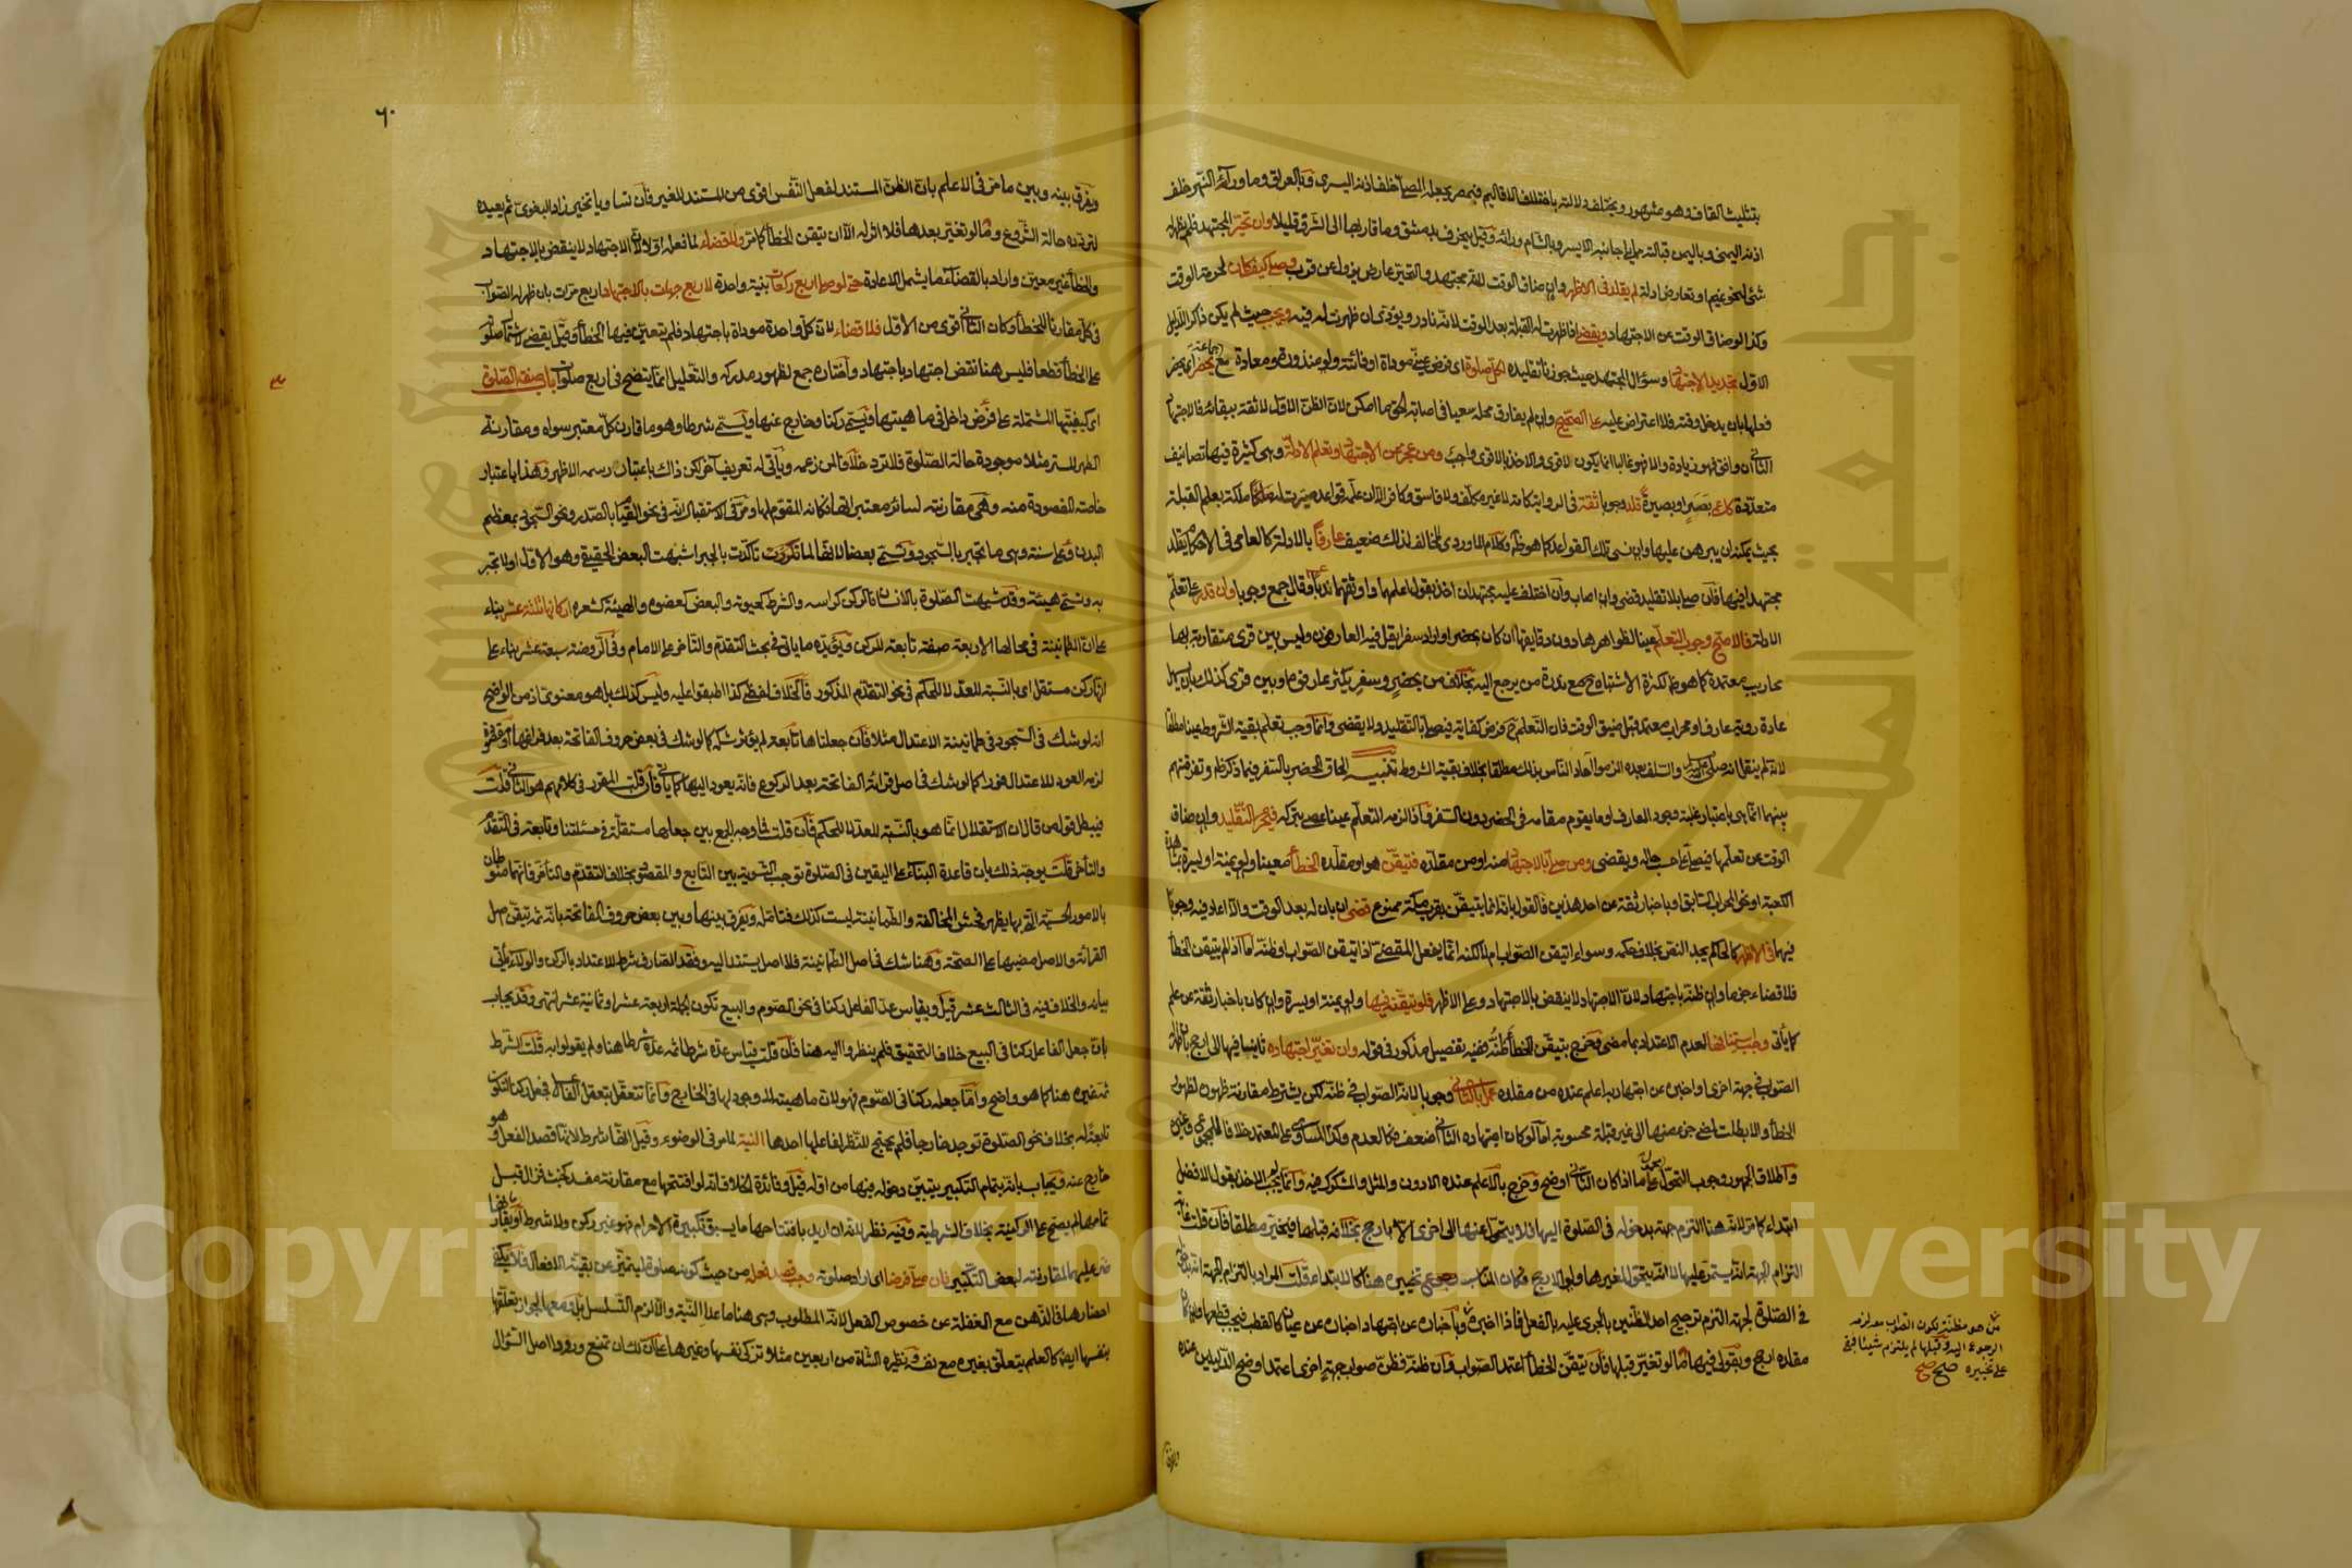 بتثليث القاف وهو مشهور ويختلف دلالته باختلاف الاقاليم ففي مصر يجعله المصلي خلف اذنه اليسرى وفي العراق وما وراء النهر خلف
اذنه اليمنى وباليمن قبالته مما يلي جانبه الايسر وبالشام وراءه وقيل ينحرف بدمشق وما قاربها الى الشرق قليلا وان تحير المجتهد فلم يظهر له
شئ لنحو غيم او تعارض ادلة لم يقلد في الاظهر وان ضاق الوقت لانه مجتهد والتحير عارض يزول عن قرب وصلى كيف كان لحرمة الوقت
وكذا لو ضاق الوقت عن الاجتهاد ويقضي اذا ظهرت له القبلة بعد الوقت لانه نادر ويؤدي ان ظهرت له فيه ويجب حيث لم يكن ذاكر الدليل
الاول تجديد الاجتهاد وسؤال المجتهد حيث جوزنا تقليده لكل صلاة اي فرض عيني مؤداة او فائتة ولو منذورة ومعادة مع جماعة
فعلها بان يدخل وقته فلا اعتراض عليه على الصحيح وان لم يفارق محله سعيا في اصابة الحق ما امكن لان الظن الاول لا ثقة ببقائه فالاجتهاد
الثاني ان وافق فهو زيادة والا فهو غالبا انما يكون لاقوى والاخذ بالاقوى واجب ومن عجز عن الاجتهاد وتعلم الادلة وهي كثيرة فيها تصانيف
متعددة كاعمى بصر او بصيرة قلد وجوبا ثقة في الرواية كامة لا غير مكلف ولا فاسق وكافر الا ان علمه قواعد صيرت له ملكة بعلم القبلة
بحيث يمكنه ان يبرهن عليها وان نسي تلك القواعد كما هو ظاهر وكلام الماوردي المخالف لذلك ضعيف عارفا بالادلة كالعامي في الاحكام يقلد
مجتهدا فيها فان صلى بلا تقليد قضى وان اصاب وان اختلف عليه مجتهدان اخذ بقول اعلمهما واوثقهما ندبا وقال جمع وجوبا وان قدر على تعلم
الادلة فالاصح وجوب التعلم عينا لظواهرها دون دقايقها ان كان بحضر او اراد سفرا يقل فيه العارفون وليس بين قرى متقاربة بها
محاريب معتمدة كما هو ظاهر لكثرة الاشتباه ح مع ندرة من يرجع اليه بخلاف من بحضر وسفر يكثر عارفوها وبين قرى كذلك بان يسهل
عادة رؤية عارف او محراب معتمد قبل ضيق الوقت فان التعلم ح فرض كفاية فيصلي بالتقليد ولا يقضي وانما وجب تعلم بقية الشروط عينا مطلقا
لانه لم ينقل انه صلى الله عليه وسلم والسلف بعده الزموا آحاد الناس بذلك مطلقا بخلاف بقية الشروط تنبيه الحاق الحضر بالسفر فيما ذكر ظاهر وتفرقتهم
بينهما انما هي باعتبار غلبة وجود العارف او ما يقوم مقامه في الحضر دون السفر واذا لزمه التعلم عينا عصى بتركه فيحرم التقليد وان ضاق
الوقت عن تعلمها فيصلي على حسب حاله ويقضي ومن صلى بالاجتهاد منه او من مقلده فتيقن هو او مقلده الخطأ معينا ولو يمنة او يسرة بمشاهدة
الكعبة او نحو المحراب السابق او باخبار ثقة عن احد هذين فالقول بانه انما يتيقن بقرب مكة ممنوع قضى ان بان له بعد الوقت والا اعاد فيه وجوبا
فيهما في الاظهر كالحاكم يجد النص بخلاف حكمه وسواء اتيقن الصواب ام لا لكنه انما يفعل المقضي اذا تيقن الصواب او ظنه اما اذا لم يتيقن الخطأ
فلا قضاء جزما وان ظنه باجتهاد لان الاجتهاد لا ينقض بالاجتهاد وعلى الاظهر فلو تيقنه فيها ولو يمنة او يسرة وان كان باخبار ثقة عن علم
كما يأتي وجب استئنافها لعدم الاعتداد بما مضى وخرج بتيقن الخطأ ظنه ففيه تفصيل مذكور في قوله وان تغير اجتهاده ثانيا فيها الى ارجح بان ظهر
الصواب في جهة اخرى او اخبره عن اجتهاده به اعلم عنده من مقلده عمل بالثاني وجوبا لانه الصواب في ظنه لكن يشترط مقارنة ظهوره لظهور
الخطأ والا بطلت لمضي جزء منها الى غير قبلة محسوبة اما لو كان اجتهاده الثاني اضعف فكالعدم وكذا المساوي على المعتمد خلافا للمجموع وغيره
واطلاق الجمهور وجوب التحول محمول على ما اذا كان الثاني اوضح وخرج بالاعلم عنده الادون والمثل والمشكوك فيه وانما لم يجب الاخذ بقول الافضل
ابتداء كما مر لانه هنا التزم جهة بدخوله في الصلوة اليها فلا يتحول عنها الى اخرى الا بارجح بخلافه قبلها فيخير مطلقا فان قلت غاية
التزام الجهة انه يستمر عليها لا انه يتحول لغيرها ولو الارجح فكان المناسب وجوع تخييره هنا كالابتداء قلت المراد بالتزام الجهة انه بدخوله
في الصلوة لجهة التزم ترجيح احد الظنين بالجري عليه بالفعل فاذا اخبره وبا خباره عن اجتهاد اخباره عن عيان كالقطب فيجب قطعها وان كان
مقلده ارجح وبقولي فيها ما لو تغير قبلها فان تيقن الخطأ اعتمد الصواب وان ظنه فظن صواب جهة اخرى اعتمد اوضح الدليلين عنده
من هو مظنة لكون الصواب معه لزمه
الرجوع اليه وقبلها لم يلتزم شيئا فبقي
على تخييره صح صح
٦٠
ويفرق بينه وبين ما مر في الاعلم بان الظن المستند لفعل النفس اقوى من المستند للغير فان تساويا تخير زاد البغوي ثم يعيده
لتردده حالة الشروع وما لو تغير بعدها فلا اثر له الا ان يتيقن الخطأ كما مر ولا قضاء لما فعله اولا لان الاجتهاد لا ينقض بالاجتهاد
والخطأ غير معين واراد بالقضاء ما يشمل الاعادة حتى لو صلى اربع ركعات بنية واحدة لاربع جهات بالاجتهاد اربع مرات بان ظهر له الصواب
في كل مقارنا للخطأ وكان الثاني اقوى من الاول فلا قضاء لان كل واحدة مؤداة باجتهاد فلم يتعين فيها الخطأ وقيل يقضي لاشتمال صلوته
على الخطأ قطعا فليس هنا نقض اجتهاد باجتهاد واختاره جمع لظهور مدركه والتعليل انما يتضح في اربع صلوات باب صفة الصلوة
اي كيفيتها المشتملة على فرض داخل في ماهيتها ويسمى ركنا وخارج عنها ويسمى شرطا وهو ما قارن كل معتبر سواه ومقارنة
الطهر للستر مثلا موجودة حالة الصلوة فلا ترد خلافا لمن زعمه ويأتي له تعريف آخر لكن ذاك باعتبار رسمه الاظهر وهذا باعتبار
خاصته المقصودة منه وهي مقارنته لسائر معتبراتها فكانه المقوم لها ومر في الاستقبال انه في نحو القيام بالصدر ونحو السجود بمعظم
البدن وعلى سنة وهي ما تجبر بالسجود وتسمى بعضا لانها لما تاكدت بالجبر اشبهت البعض الحقيقي وهو الاول او لا تجبر
به وتسمى هيئة وقد شبهت الصلوة بالانسان فالركن كراسه والشرط كحيوته والبعض كعضوه والهيئة كشعره اركانها ثلثة عشر بناء
على ان الطمانينة في محالها الاربعة صفة تابعة للركن ويؤيده ما ياتي في بحث التقدم والتاخر على الامام وفي الروضة سبعة عشر بناء على
انها ركن مستقل اي بالنسبة للعد لا للحكم في نحو التقدم المذكور فالخلاف لفظي كذا اطبقوا عليه وليس كذلك بل هو معنوي اذ من الواضح
انه لو شك في السجود في طمانينة الاعتدال مثلا فان جعلناها تابعة لم يؤثر شكه كما لو شك في بعض حروف الفاتحة بعد فراغها او مقصودة
لزمه العود للاعتدال فورا كما لو شك في اصل قراءة الفاتحة بعد الركوع فانه يعود اليها كما ياتي فان قلت المقرر في كلامهم هو الثاني قلت
فيبطل قول من قال ان الاستقلال انما هو بالنسبة للعد لا للحكم فان قلت فما وجه الجمع بين جعلها مستقلة في مسئلتنا وتابعة في التقدم
والتاخر قلت يوجه ذلك بان قاعدة البناء على اليقين في الصلوة توجب التسوية بين التابع والمقصود بخلاف التقدم والتاخر فانهما منوطان
بالامور الحسية التي بها يظهر فحش المخالفة والطمانينة ليست كذلك فتامله ويفرق بينها وبين بعض حروف الفاتحة بانه ثم تيقن اصل
القراءة والاصل مضيها على الصحة وهنا شك في اصل الطمانينة فلا اصل يستند اليه وفقد الصارف شرط للاعتداد بالركن والولاء ياتي
بيانه والخلاف فيه في الثالث عشر قيل وبقياس عد الفاعل ركنا في نحو الصوم والبيع تكون الجملة اربعة عشر او ثمانية عشر انتهى وقد يجاب
بان جعل الفاعل ركنا في البيع خلاف التحقيق فلم ينظروا اليه هنا فان قلت قياس عده شرطا ثم عده شرطا هنا ولم يقولوا به قلت الشرط
ثم غيره هنا كما هو واضح واما جعله ركنا في الصوم فهو لان ماهيته لا وجود لها في الخارج وانما تتعقل بتعقل الفاعل فجعل ركنا لتكون
تابعة له بخلاف نحو الصلوة توجد خارجا فلم يحتج للنظر لفاعلها احدها النية لما مر في الوضوء وقيل انها شرط لانها قصد الفعل وهو
خارج عنه ويجاب بانه بتمام التكبير يتبين دخوله فيها من اوله قيل وفائدة الخلاف انه لو افتتحها مع مقارنة مفسد كخبث فزال قبل
تمامها لم يصح على الركنية بخلاف الشرطية وفيه نظر لانه ان اريد بافتتاحها ما يسبق تكبيرة الاحرام فهو غير ركن ولا شرط او بقارنها
ضر عليهما لمقارنته لبعض التكبير فان صلى فرضا اي اراد صلوته وجب قصد فعله من حيث كونه صلوة ليتميز عن بقية الافعال فلا يكفي
احضارها في الذهن مع الغفلة عن خصوص الفعل لانه المطلوب وهي هنا ما عدا النية والا لزم التسلسل بل ومعها لجواز تعلقها
بنفسها ايضا كالعلم يتعلق بغيره مع نفسه ونظيره الشاة من اربعين مثلا وتزكي نفسها وغيرها على ان لك ان تمنع ورود اصل السؤال